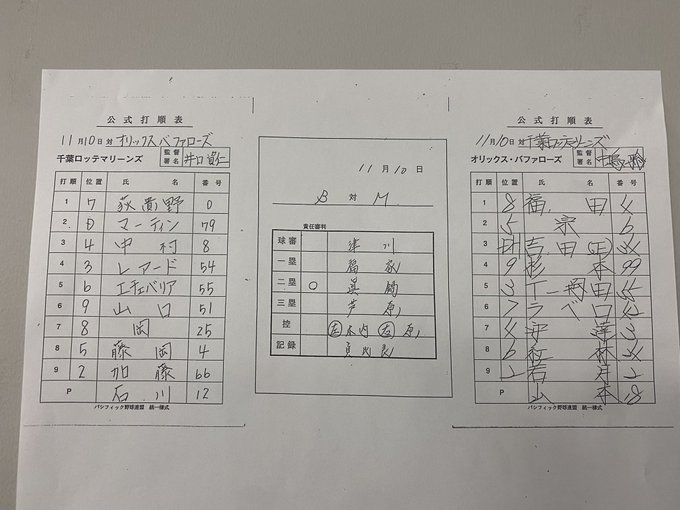 公式打順表
11月10日 対 オリックスバファローズ
千葉ロッテマリーンズ 監督署名 井口資仁
打順 位置 氏名 番号
1 7 荻貴野 0
2 D マーティン 79
3 4 中村 8
4 3 レアード 54
5 6 エチェバリア 55
6 9 山口 51
7 8 岡 25
8 5 藤岡 4
9 2 加藤 66
P 石川 12
パシフィック野球連盟 統一様式
11月10日
B 対 M
責任審判
球審 津川
一塁 福家
二塁 ○ 眞鍋
三塁 芦原
控 木内 原
記録
公式打順表
11月10日 対 千葉ロッテマリーンズ
オリックス・バファローズ 監督署名 中嶋
打順 位置 氏名 番号
1 8 福田 4
2 5 宗 6
3 DH 吉田(正) 34
4 9 杉本 99
5 3 T-岡田 55
6 7 ラベロ
7 4 安達 3
8 6 紅林 24
9 2 若月 2
P 山本 18
パシフィック野球連盟 統一様式